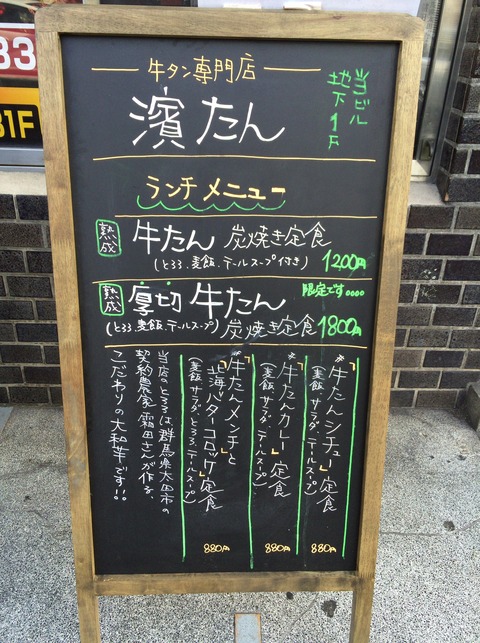 牛タン専門店
濱たん
当ビル
地下1F
ランチメニュー
熟成
牛たん 炭焼き定食
(とろろ、麦飯、テールスープ付き) 1200円
熟成
厚切 牛たん
限定です。。。。
(とろろ、麦飯、テールスープ) 炭焼き定食 1800円
*「牛たんシチュー」定食
(麦飯、サラダ、テールスープ)
880円
*「牛たんカレー」定食
(麦飯、サラダ、テールスープ)
880円
*「牛たんメンチと
北海バターコロッケ」定食
(麦飯、サラダ、とろろ、テールスープ)
880円
当店のとろろは、群馬県太田市の
契約農家、霜田さんが作る、
こだわりの大和芋です!!
33
31F